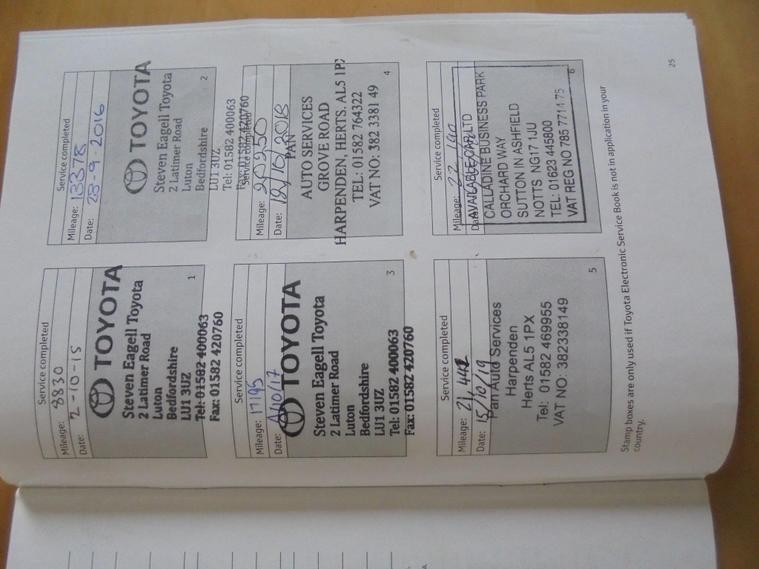 Service completed
Mileage: 8830
Date: 2-10-15
TOYOTA
Steven Eagell Toyota
2 Latimer Road
Luton
Bedfordshire
LU1 3UZ
Tel: 01582 400063
Fax: 01582 420760
1
Service completed
Mileage: 13378
Date: 28-9-2016
TOYOTA
Steven Eagell Toyota
2 Latimer Road
Luton
Bedfordshire
LU1 3UZ
Tel: 01582 400063
Fax: 01582 420760
2
Service completed
Mileage: 17195
Date: /10/17
TOYOTA
Steven Eagell Toyota
2 Latimer Road
Luton
Bedfordshire
LU1 3UZ
Tel: 01582 400063
Fax: 01582 420760
3
Service completed
Mileage: 20250
Date: 12/10/2018
PAN
AUTO SERVICES
GROVE ROAD
HARPENDEN, HERTS. AL5 1PX
TEL: 01582 764322
VAT NO: 382 3381 49
4
Service completed
Mileage: 21,442
Date: 15/10/19
Pan Auto Services
Harpenden
Herts AL5 1PX
Tel: 01582 469955
VAT NO: 382338149
5
Service completed
Mileage:
AVAILABLE CAR LTD
CALLADINE BUSINESS PARK
ORCHARD WAY
SUTTON IN ASHFIELD
NOTTS NG17 1JU
TEL: 01623 445800
VAT REG NO 785 7714 75
6
Stamp boxes are only used if Toyota Electronic Service Book is not in application in your
country.
25